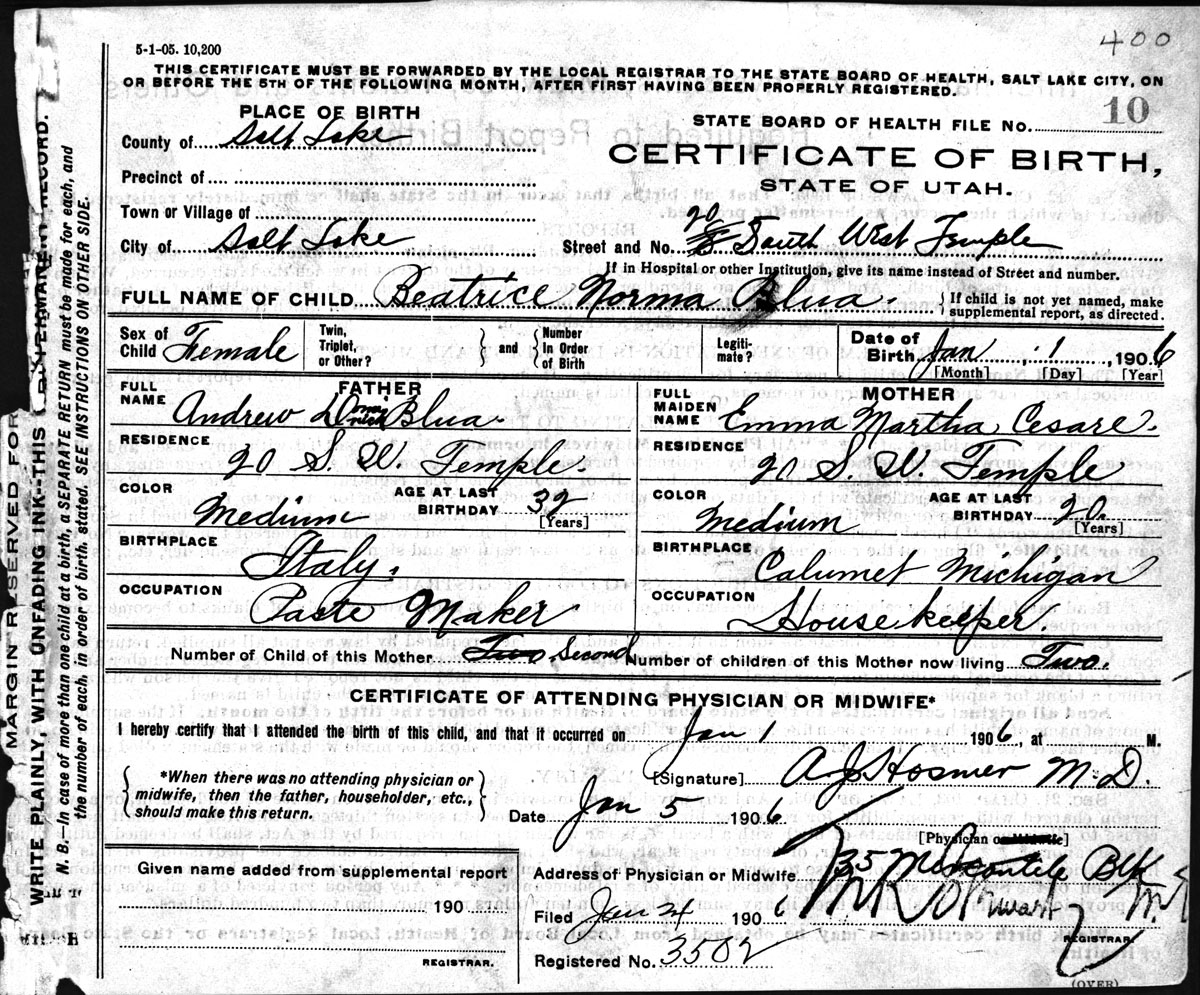 400
5-1-05. 10,200
THIS CERTIFICATE MUST BE FORWARDED BY THE LOCAL REGISTRAR TO THE STATE BOARD OF HEALTH, SALT LAKE CITY, ON
OR BEFORE THE 5TH OF THE FOLLOWING MONTH, AFTER FIRST HAVING BEEN PROPERLY REGISTERED.
PLACE OF BIRTH
STATE BOARD OF HEALTH FILE No. 10
County of Salt Lake
CERTIFICATE OF BIRTH,
STATE OF UTAH.
Precinct of
Town or Village of
City of Salt Lake
Street and No. 20 South West Temple
If in Hospital or other Institution, give its name instead of Street and number.
FULL NAME OF CHILD Beatrice Norma Blua. { If child is not yet named, make
supplemental report, as directed.
Sex of Child Female
Twin, Triplet, or Other? } and { Number In Order of Birth
Legiti-mate?
Date of Birth Jan 1, 1906
[Month] [Day] [Year]
FATHER
FULL NAME Andrew Dominick Blua.
RESIDENCE 20 S. W. Temple
COLOR Medium
AGE AT LAST BIRTHDAY 32 [Years]
BIRTHPLACE Italy.
OCCUPATION Paste Maker
MOTHER
FULL MAIDEN NAME Emma Martha Cesare.
RESIDENCE 20 S. W. Temple
COLOR Medium
AGE AT LAST BIRTHDAY 20. [Years]
BIRTHPLACE Calumet Michigan
OCCUPATION House keeper.
Number of Child of this Mother Two Second
Number of children of this Mother now living Two.
CERTIFICATE OF ATTENDING PHYSICIAN OR MIDWIFE*
I hereby certify that I attended the birth of this child, and that it occurred on Jan 1 1906, at M.
{ *When there was no attending physician or
midwife, then the father, householder, etc.,
should make this return. }
[Signature] A J Hosmer M.D.
Date Jan 5 1906
[Physician or Midwife]
Given name added from supplemental report
190
REGISTRAR.
Address of Physician or Midwife. 35 Mercantile Blk
Filed Jan 4 1906
REGISTRAR.
Registered No. 3502
(OVER)
MARGIN RESERVED FOR
WRITE PLAINLY, WITH UNFADING INK--THIS PERMANENT RECORD.
N. B.—In case of more than one child at a birth, a SEPARATE RETURN must be made for each, and
the number of each, in order of birth, stated. SEE INSTRUCTIONS ON OTHER SIDE.